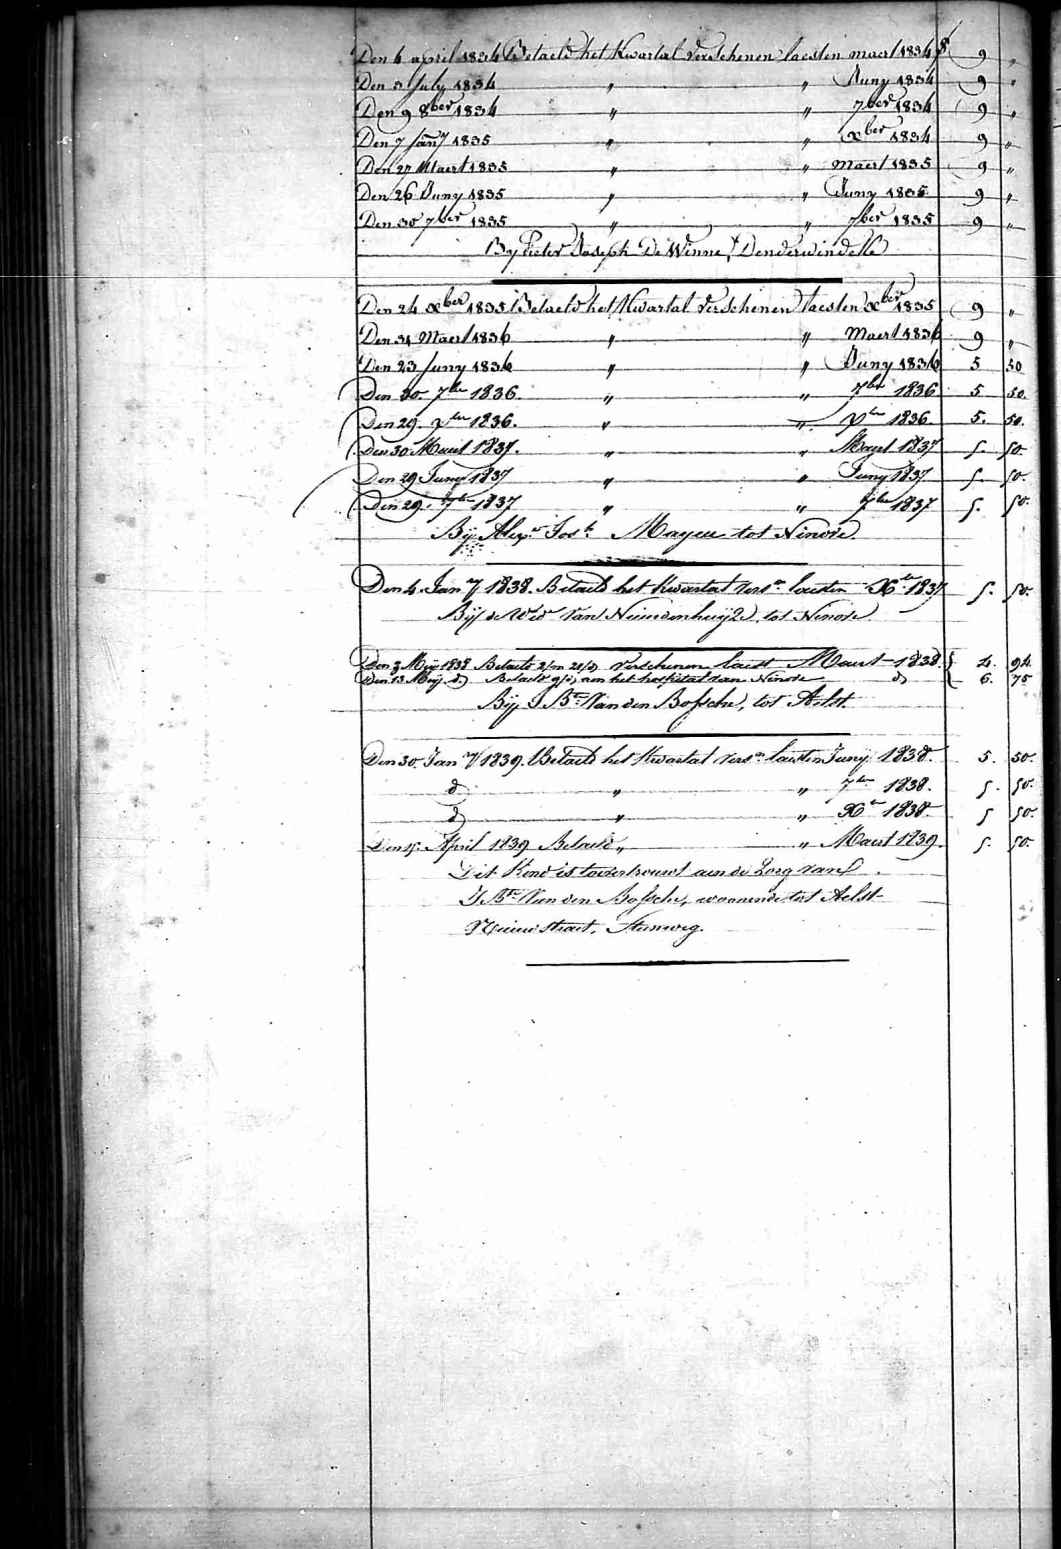 Den 4 april 1834 Betaeld het Kwartal verschenen laesten maert 1834 f 9 "
Den 5 July 1834 " " Juny 1834 9 "
Den 9 8ber 1834 " " 7ber 1834 9 "
Den 7 Jan.y 1835 " " xber 1834 9 "
Den 27 Maert 1835 " " maert 1835 9 "
Den 26 Juny 1835 " " Juny 1835 9 "
Den 30 7ber 1835 " " 7ber 1835 9 "
By Pieter Joseph De Winne, t' Denderwindeke
Den 24 xber 1835 Betaeld het Kwartal verschenen laesten xber 1835 9 "
Den 31 Maert 1836 " " Maert 1836 9 "
Den 23 Juny 1836 " " Juny 1836 5 50
Den 30 7ber 1836. " " 7ber 1836 5 50.
Den 29. xber 1836. " " xber 1836. 5. 50.
Den 30 Maert 1837. " " Maert 1837 5. 50.
Den 29 Juny 1837 " " Juny 1837 5. 50.
Den 29. 7ber 1837 " " 7ber 1837 5. 50.
Bij Alexr Josh Mayeu tot Ninove.
Den 4. Jan.y 1838. Betaeld het kwartal versn laesten Xber 1837 5. 50.
Bij de Wed van Nieuwenhuijze, tot Ninove.
Den 3 Meij 1838 Betaeld verschenen laest Maert 1838. 4. 94.
Den 13 Meij. do Betaeld aen het hospitael van Ninove do 6. 75
Bij J Bte Van den Bossche, tot Aelst.
Den 30. Jan.y 1839. Betaeld het Kwartal versn laesten Junij 1838. 5. 50.
do " " 7ber 1838. 5. 50.
do " " Xber 1838. 5 50.
Den 5. April 1839 Betaeld " " Maert 1839. 5. 50.
Dit Kind is toevertrouwt aen de Zorg van
J Bte Van den Bossche, woonende tot Aelst
Nieuwstraet, Steenweg.